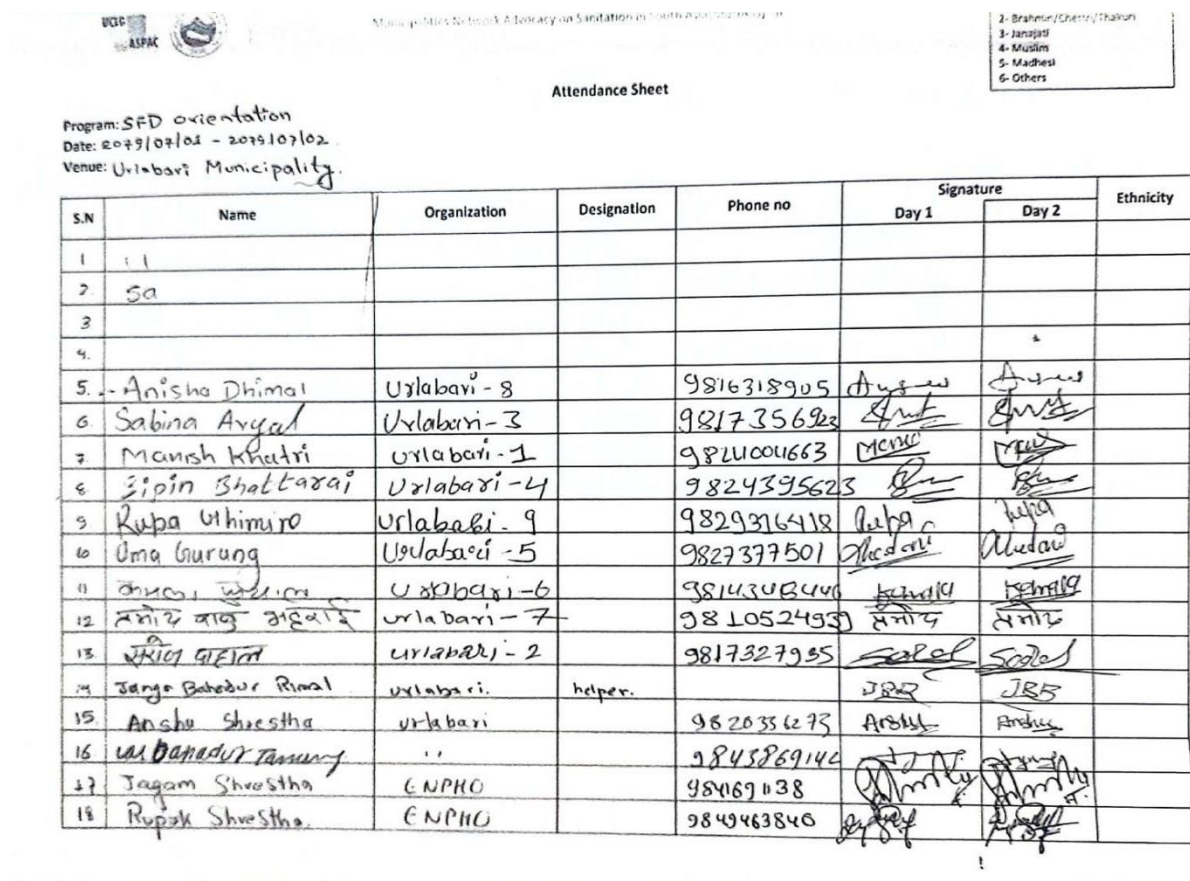 UCLG
ASPAC
Municipalities Network Advocacy on Sanitation in South Asia
2- Brahmin/Chettri/Thakuri
3- Janajati
4- Muslim
5- Madhesi
6- Others
Attendance Sheet
Program: SFD orientation
Date: 2079/07/01 - 2079/07/02
Venue: Urlabari Municipality.
S.N Name Organization Designation Phone no Signature Ethnicity
Day 1 Day 2
1
2. Sa
3
4.
5. Anisha Dhimal Urlabari - 8 9816318905
6. Sabina Aryal Urlabari - 3 9817356923
7. Manish Khatri Urlabari - 1
8. Bipin Bhattarai Urlabari - 4 9824395623
9. Rupa Urlababi - 9 9829316418 Rupa Rupa
10 Uma Gurung Urlabari - 5 9827377501
11 Urlabari - 6 Kamala Kamala
12 प्रमोद बाबु भट्टराई urlabari - 7 9810524939 प्रमोद प्रमोद
13 urlabari - 2 9817327935
14 Janga Bahadur Rimal urlabari. helper. JBR JBR
15. Anshu Shrestha urlabari 9820336273 Anshu Anshu
16 Bahadur Tamang " 
17 Jagam Shrestha ENPHO 9841691138
18 Rupak Shrestha. ENPHO 9849463840